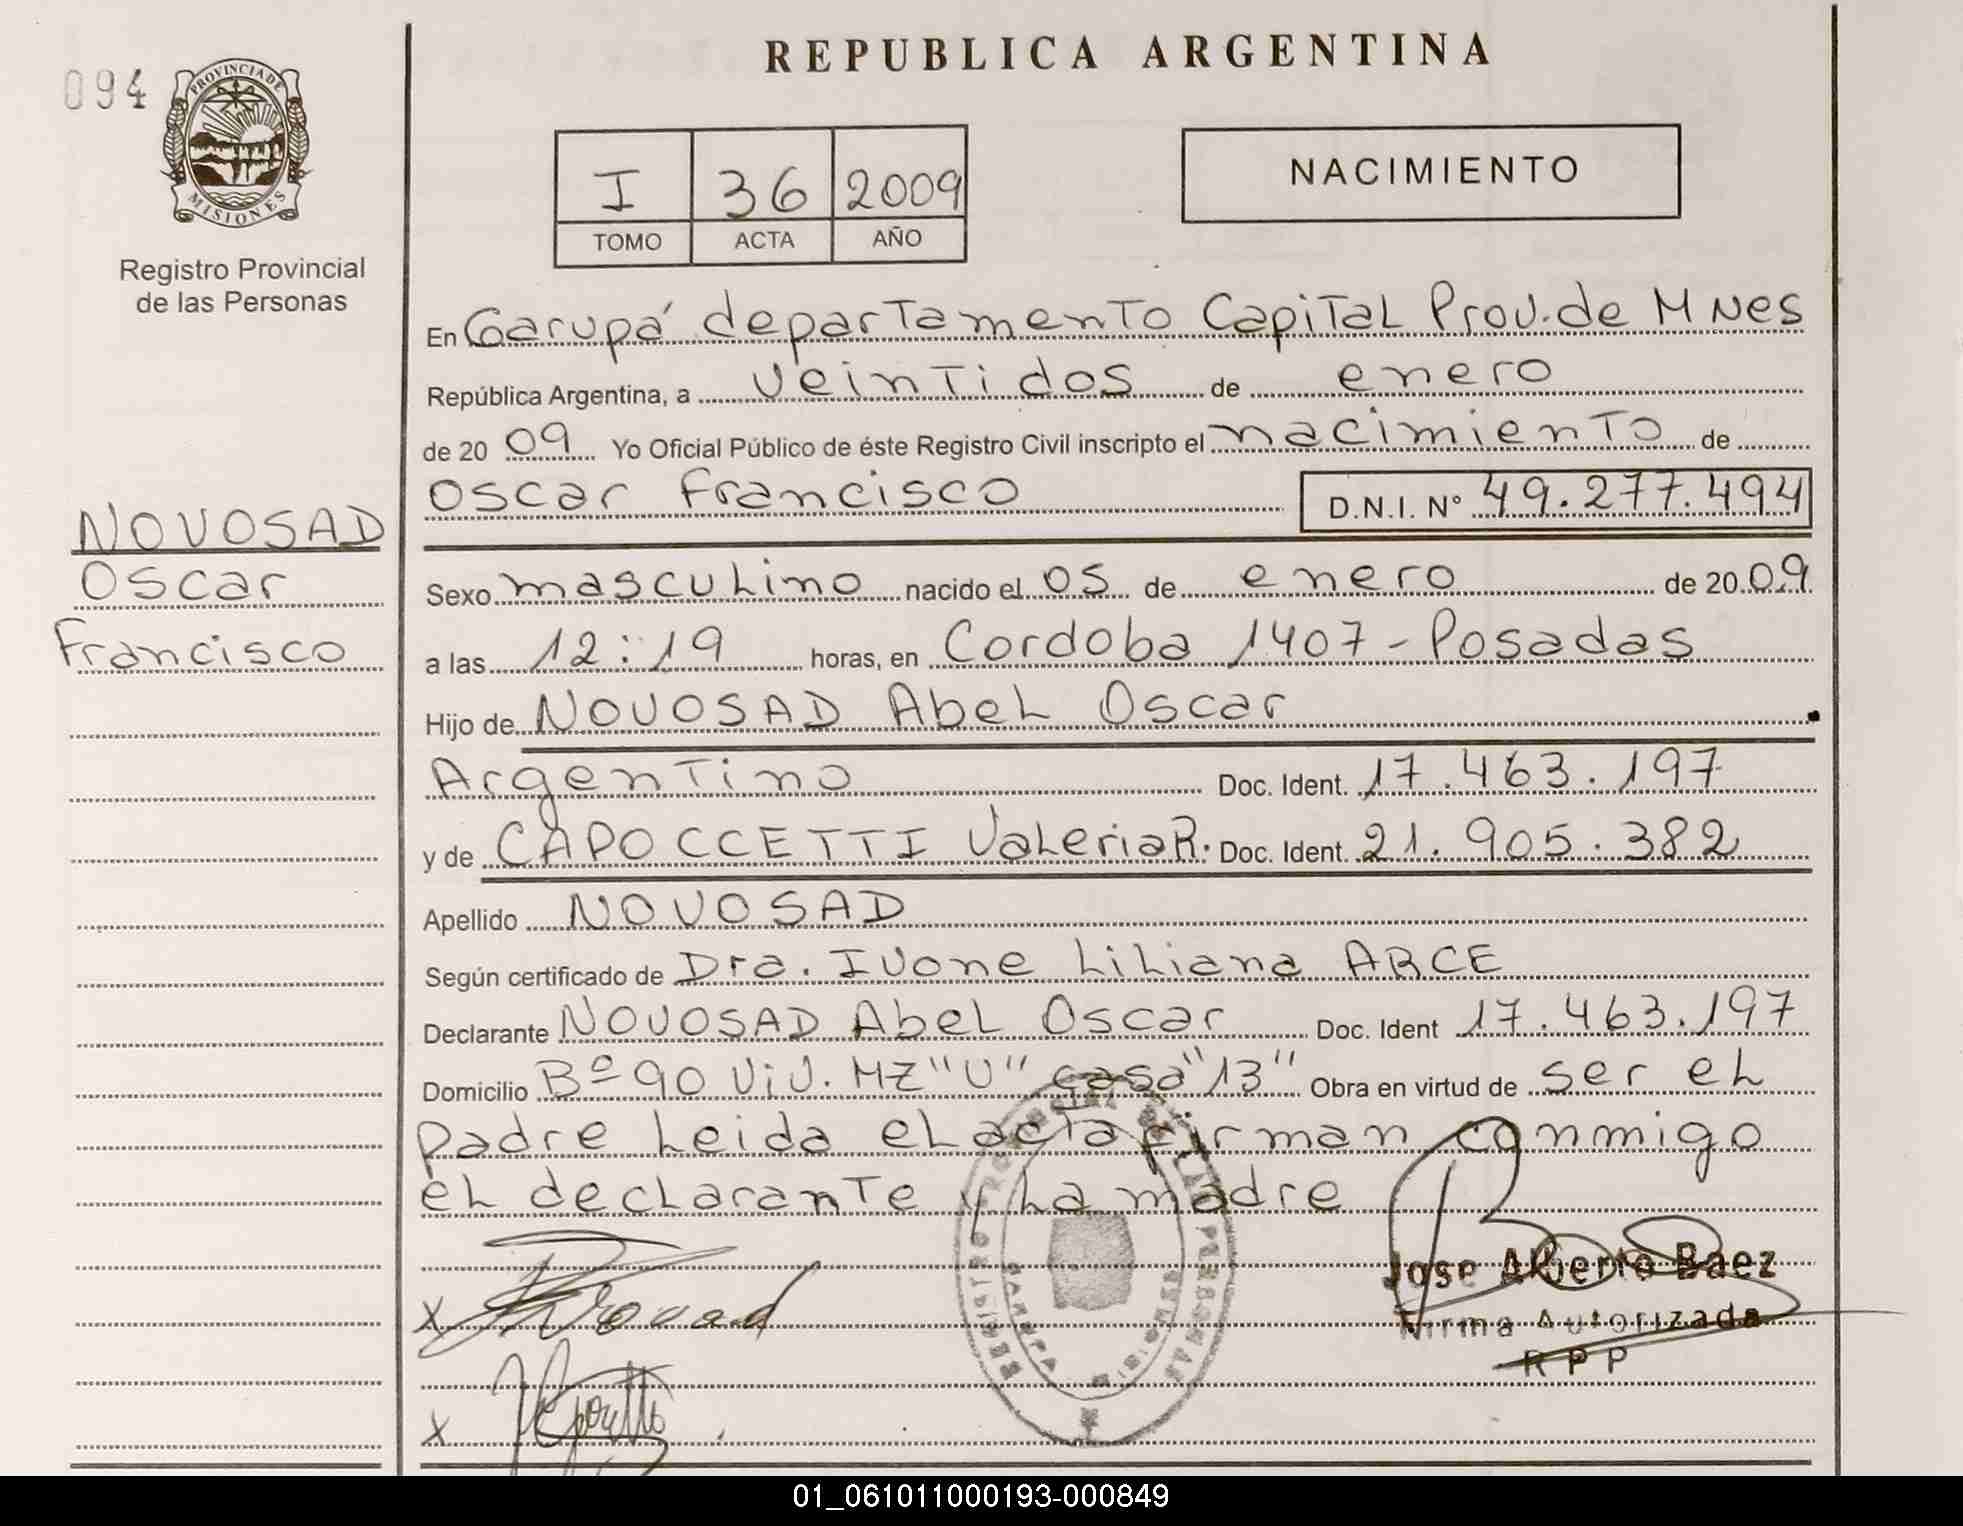 REPUBLICA ARGENTINA
094
PROVINCIA DE
MISIONES
Registro Provincial
de las Personas
I 36 2009
TOMO ACTA AÑO
NACIMIENTO
En Garupá departamento Capital Prov. de Mnes
República Argentina, a veintidos de enero
de 20 09 Yo Oficial Público de éste Registro Civil inscripto el nacimiento de
Oscar Francisco D.N.I. N° 49.277.494
NOVOSAD
Oscar
Francisco
Sexo masculino nacido el 05 de enero de 20 09
a las 12:19 horas, en Cordoba 1407 - Posadas
Hijo de NOVOSAD Abel Oscar
Argentino Doc. Ident. 17.463.197
y de CAPOCCETTI Valeria R. Doc. Ident. 21.905.382
Apellido NOVOSAD
Según certificado de Dra. Ivone Liliana ARCE
Declarante NOVOSAD Abel Oscar Doc. Ident 17.463.197
Domicilio Bº 90 Viv. MZ "U" casa "13" Obra en virtud de ser el
padre Leida el acta firman conmigo
el declarante y la madre
REGISTRO PROVINCIAL DE LAS PERSONAS
GARUPA MISIONES
Jose Alberto Baez
Firma Autorizada
RPP
X
X
01_061011000193-000849